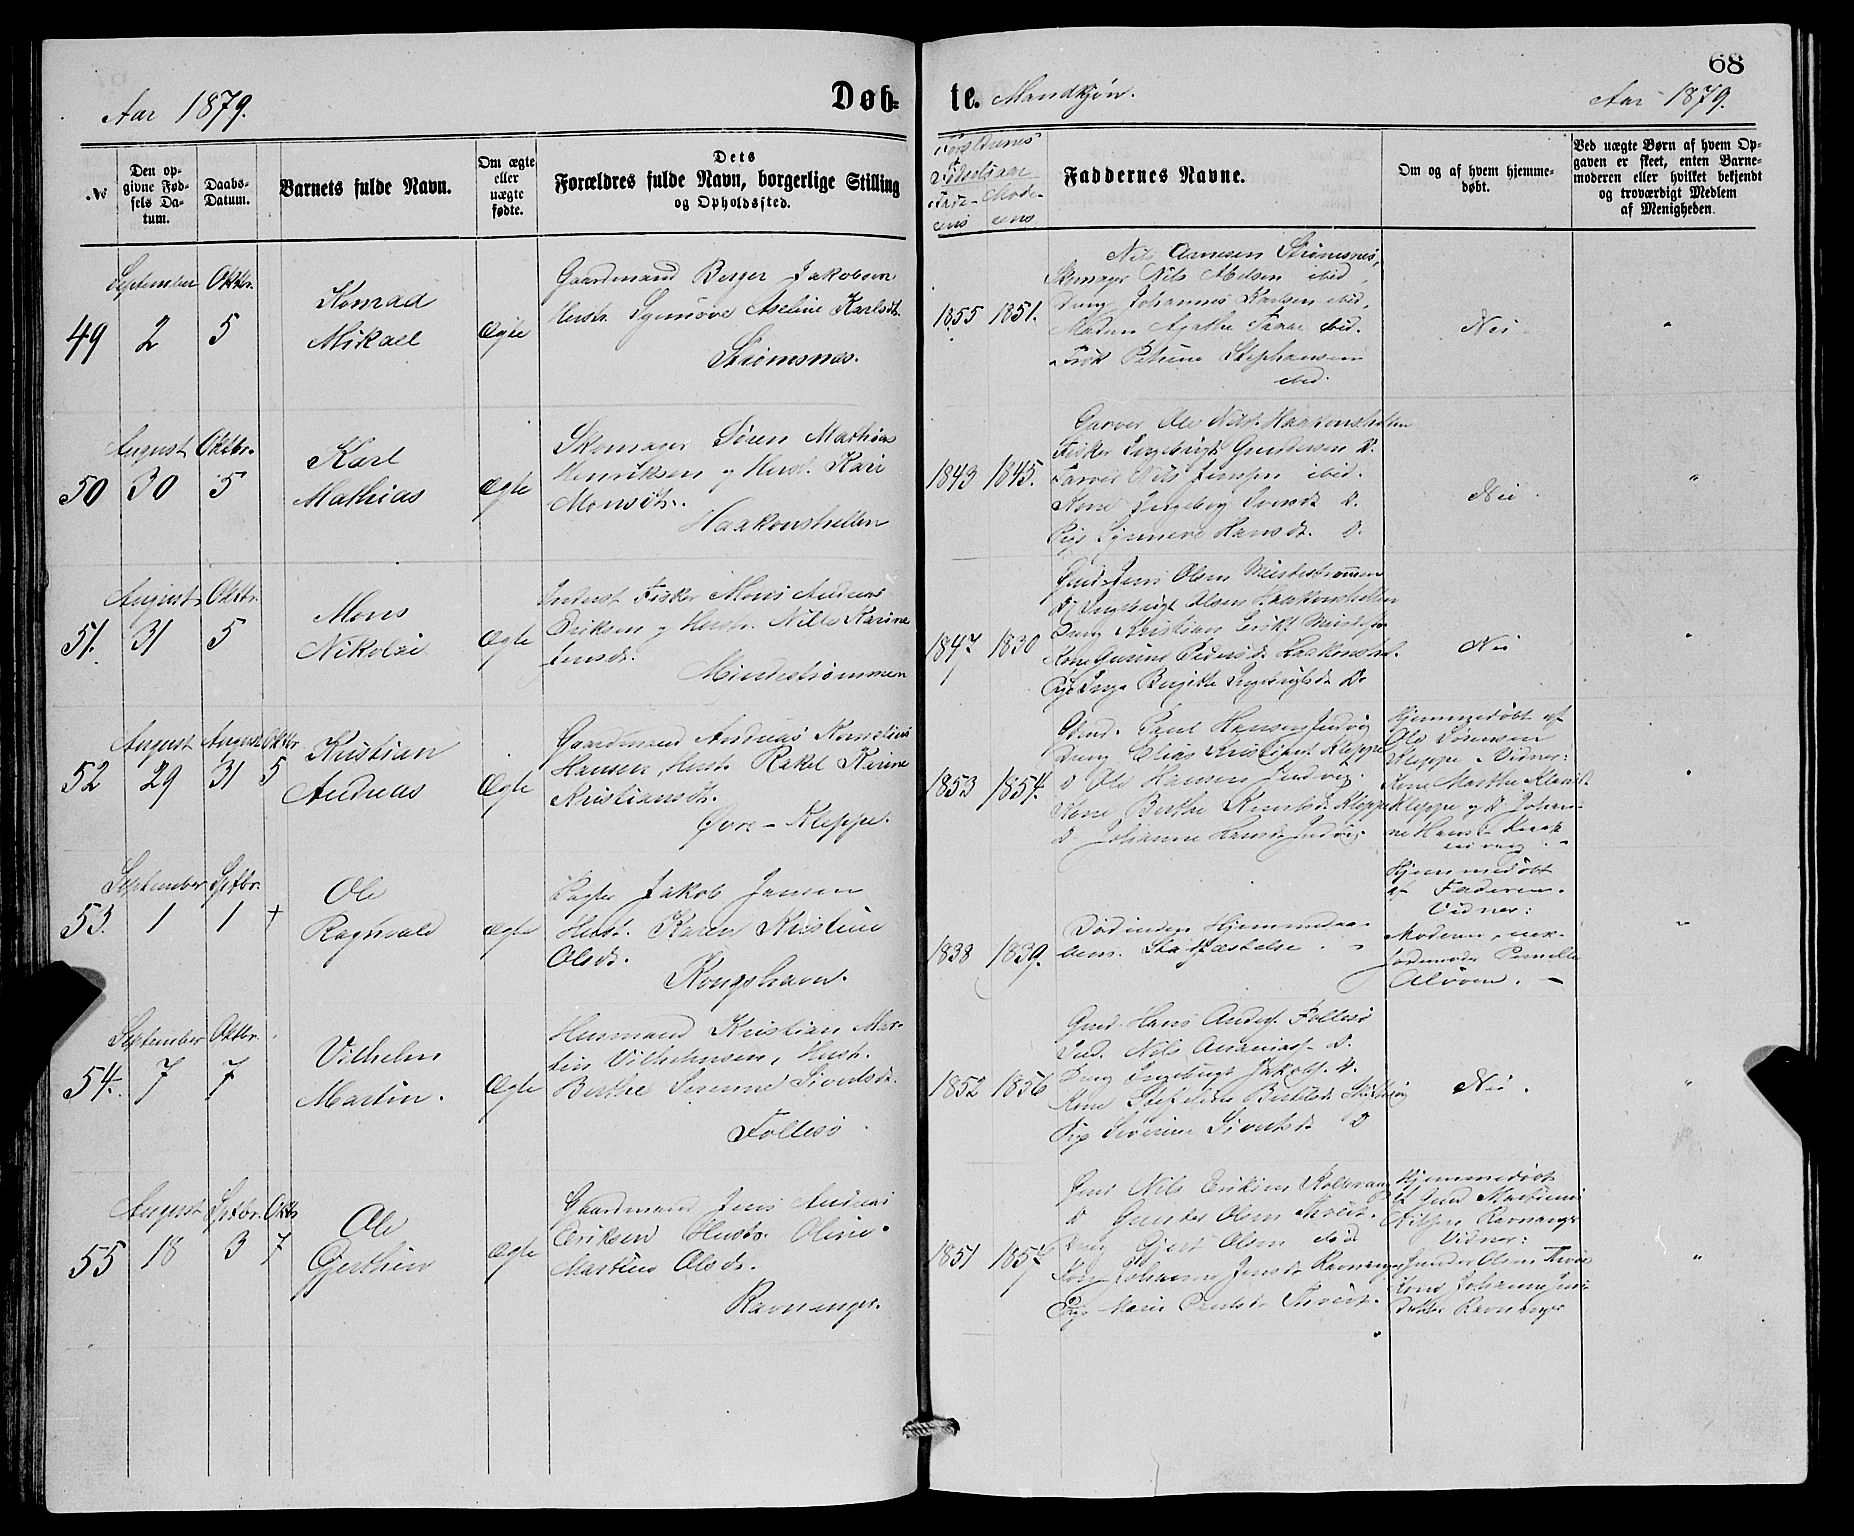 68
Aar 1879.
Døb-
te. Mandkjøn.
Aar 1879.
№
Den op-
givne Fød-
sels Da-
tum.
Daabs-
Datum.
Barnets fulde Navn.
Om ægte
eller
uægte
fødte.
Dets
Forældres fulde Navn, borgerlige Stilling
og Opholdssted.
Forældrenes
Fødselsaar
Fade- Mode-
rens rens
Faddernes Navne.
Om og af hvem hjemme-
døbt.
Ved uægte Børn af hvem Op-
gaven er skeet, enten Barne-
moderen eller hvilket bekjendt
og troværdigt Medlem
af Menigheden.
49
September
2
Oktbr.
5
Konrad
Mikael
Ægte
Gaardmand Berger Jakobsen
Hustr. Synnøve Aseline Karlsdt.
Strømsnes.
1855 1851.
Nils Arnesen Strømsnes,
Skomager Nils Abelsen ibid,
Dreng Johannes Karlsen ibid,
Madm Agathe ibid.
Frøk Petrine Stephansen
ibid.
Nei
"
50
August
30
Oktbr.
5
Karl
Mathias
Ægte
Skomager Søren Mathias
Henriksen og Hust. Kari
Monsdtr.
Haakonshellen
1843 1845.
Garver Ole Nils. Haakonshellen
Fisker Ingebrigt Gundersen D.
Farver Nils Jensen ibid.
Kone Ingeborg Iversdt D.
Pige Synneve Hansdt. D.
Nei
"
51.
August
31
Oktbr.
5
Mons
Nikolai
Ægte
Inderst Fisker Mons Andreas
Eriksen og Hustr. Nille Karine
Jensdt.
Mindestrømmen
1847 1830
Gmd. Jens Olsen Mindestrømmen
D Ingebrigt Olsen Haakonshellen
Dreng Kristian Eriks.
Kone Gurine Pedersdt Haakonshel.
Pige Inga Birgithe Ingebrigtsdt D.
Nei
"
52
August
29
August
31
Oktbr
5
Kristian
Andreas
Ægte
Gaardmand Andreas Kornelius
Hansen, Hustr Rakel Karine
Kristiansdt.
Øvre-Kleppe.
1853 1854.
Gmd. Paul Hansen Indvig
Dreng Elias Kristians Kleppe
D Ole Hansen Indvig.
Kone Berthe Knutsdt Kleppe
D Johanne Hansdt Indvig.
Hjemmedøbt af
Ole Sørensen
Kleppe. Vidner:
Kone Marthe
Kleppe og D Johan-
ne Hansd
"
53.
September
1
Sptbr.
1
+
Ole
Ragnvald
Ægte
Pagter Jakob Jansen
Hust. Karen Kristine
Olsdt.
Kongshavn.
1838 1839.
Død inden Hjemmedaa-
bens Stadfæstelse.
Hjemmedøbt
af Faderen.
Vidner:
Moderen, 
Jordemoder Pernille
Alvøen.
"
54.
September
7
Oktbr.
7
Vilhelm
Martin.
Ægte
Husmand Kristian Mar-
tin Vilhelmsen, Hust.
Berthe Serenne Sivertsdt.
Follesø
1852 1856
Gmd. Hans Anders. Follesø
Ind. Nils Ananias. D.
Dreng Ingebrigt Jakobs. D.
Kone Berteldt
Pige Severine Sivertsdt D
Nei.
"
55
August
18
Sptbr.
3
Oktb
7
Ole
Gjerthin
Ægte
Gaardmand Jens Andreas
Eriksen Hustr. Oline
Martine Olsdt.
Ravnanger.
1851 1854
Gmd Nils Eriksen
D Gunder Olsen
Dreng Gjert Olsen ibid
Kone Johanne Jensdt Ravnanger
Pige Marie
Hjemmedøbt
af Gmd Mathias
Nilsen Ravnanger
Vidner:
Gunder Olsen
Kone Johanne Jens-
datter Ravnanger
"